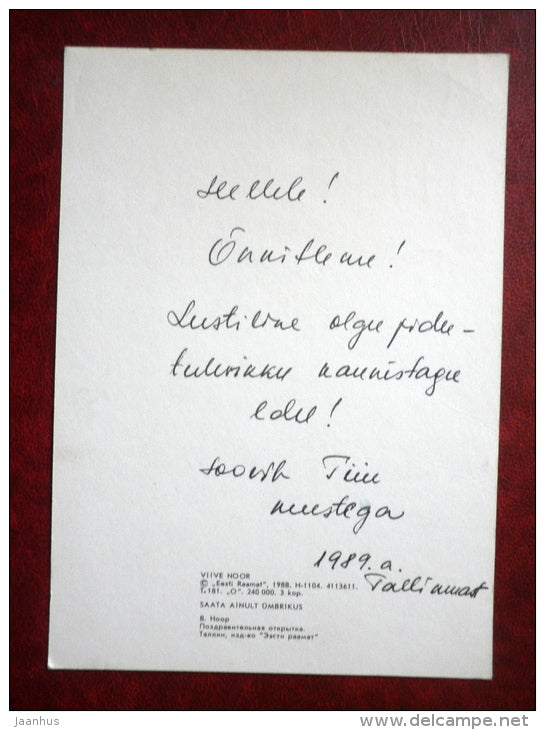 Õnnitleme!
Lustiline olgu pidu –
tulevikku kaunistagu
edu!
soovib Tiiu
mustega
1989. a.
Tallinnast
VIIVE NOOR
© „Eesti Raamat", 1988. H-1104. 4113611.
T. 181. „O". 240 000. 3 kop.
SAATA AINULT ÜMBRIKUS
В. Ноор
Поздравительная открытка.
Таллин, изд-во "Ээсти раамат"
jaanhus
www.delcampe.net